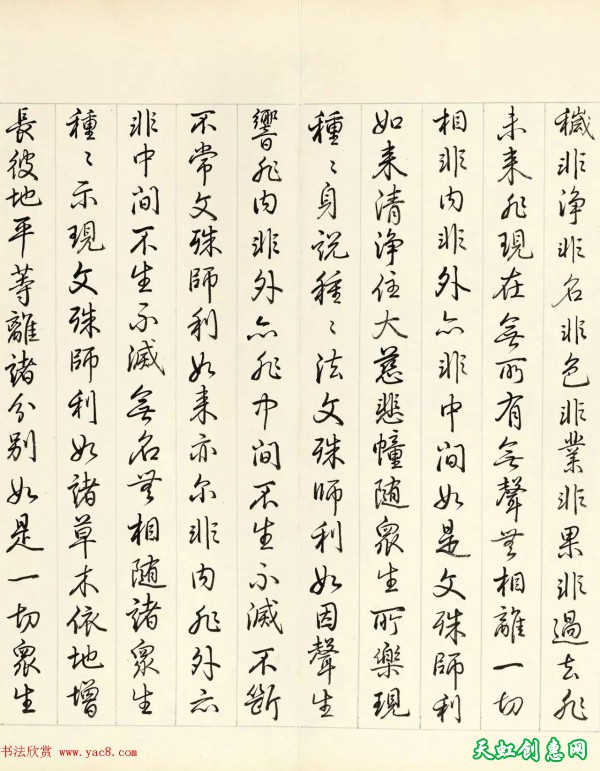 穢非淨非名非色非業非果非過去非
未来非現在無所有無聲無相離一切
相非内非外亦非中间如是文殊師利
如来清淨住大慈悲幢随眾生所樂現
種〻身説種〻法文殊師利如因聲生
響非内非外亦非中间不生不滅不斷
不常文殊師利如来亦尔非内非外亦
非中间不生不滅無名無相随諸眾生
種〻示現文殊師利如諸草木依地增
長彼地平等離諸分别如是一切眾生
书法欣赏 www.yac8.com
天虹创惠网